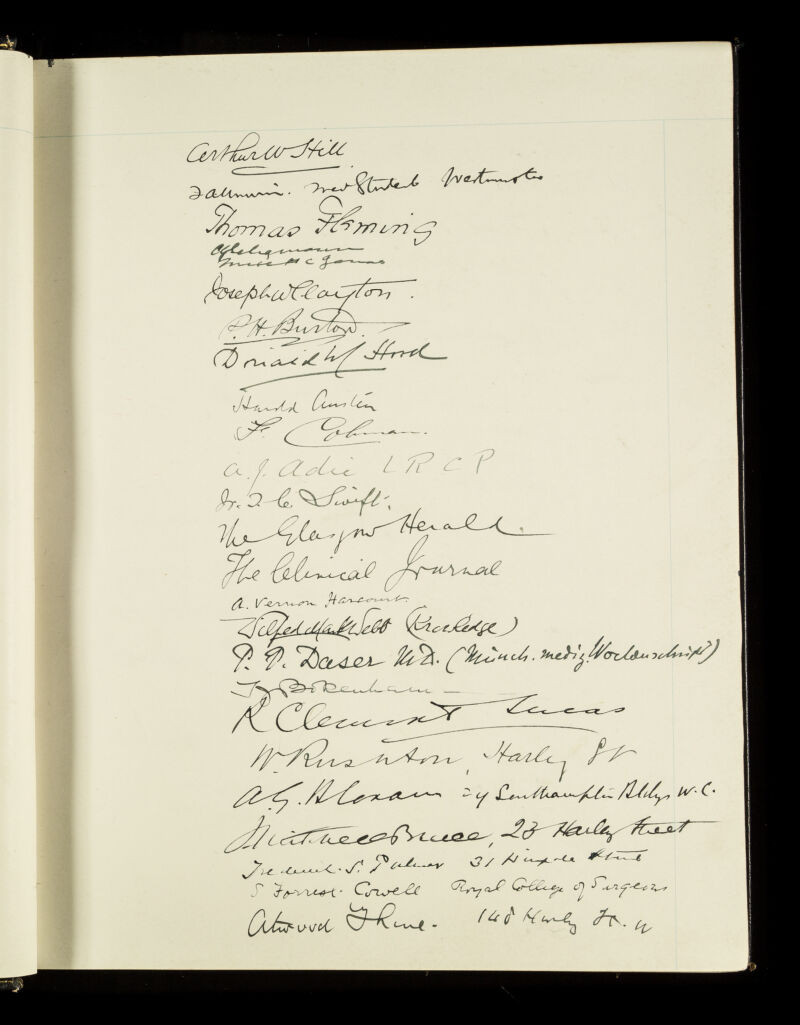 Arthur W Hill
Med Student Westminster
Thomas Fleming
Joseph W Clayton.
P. H. Burton.
Donald W Hood
Harold Austen
F. Colman.
A. J. Adie L R C P
Dr. T. C. Swift.
The Glasgow Herald.
The Clinical Journal
A. Vernon Harcourt.
Wilfred Mark Webb (Knowledge)
P. P. Daser M.D. (Münch. mediz Wochenschrift)
T J Bokenham
R Clement Lucas
W. Rushton, Harley St
A. G. Bloxam Southampton Bldgs W. C.
J Mitchell Bruce, 23 Harley Street
Frederick S. Palmer 31 Wimpole Street
S Forrest Cowell Royal College of Surgeons
Atwood Thorne. 148 Harley St. W